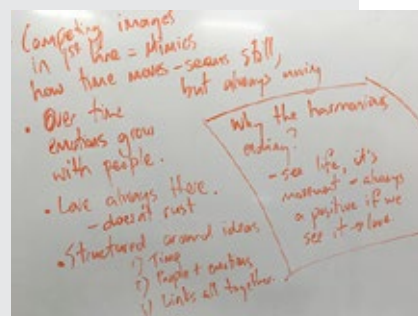 Competing images
in 1st line = Mimics
how time moves - seems still,
but always moving
• Over time
emotions grow
with people.
• Love always there.
- doesn't rust
• Structured around ideas
1) Time
2) People + emotions
3) Links all together.
Why the harmonious
ending?
- see life, it's
movement - always
a positive if we
see it → love.